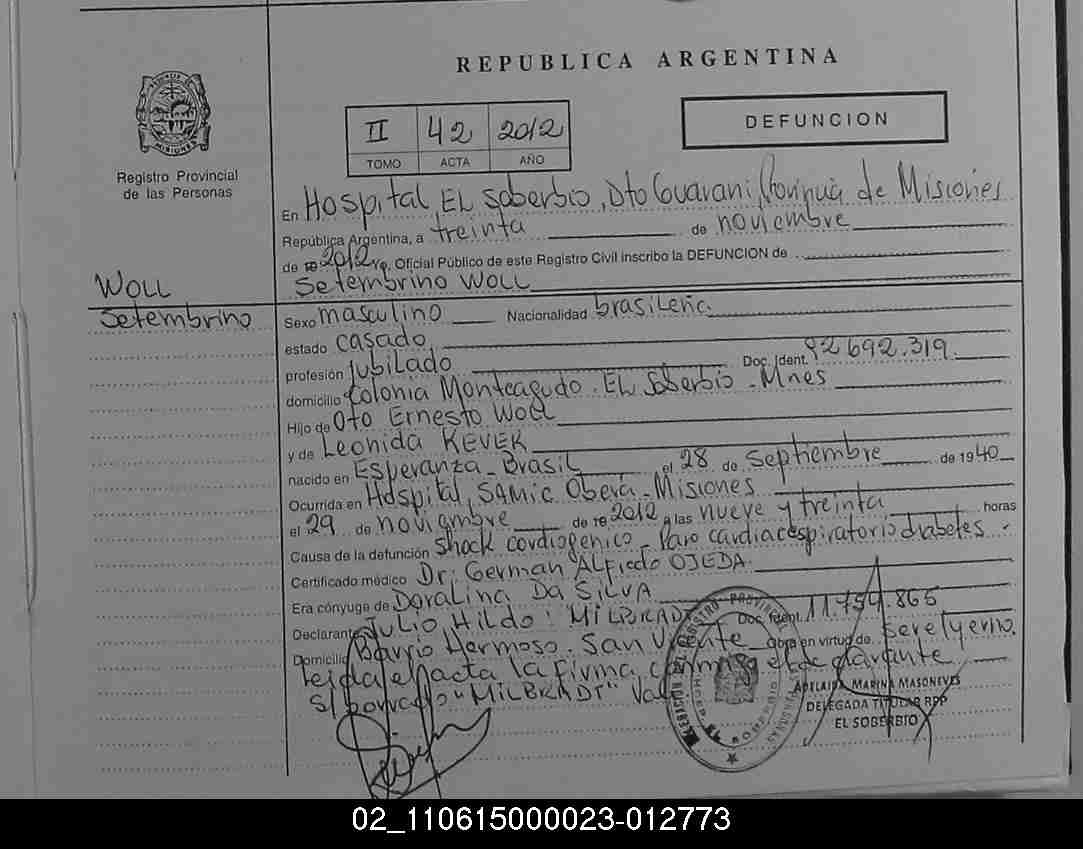 REPUBLICA ARGENTINA
MISIONES
Registro Provincial
de las Personas
II 42 2012
TOMO ACTA AÑO
DEFUNCION
En Hospital EL Soberbio, Dto Guarani, Provincia de Misiones
República Argentina, a treinta de noviembre
de 19 2012 yo, Oficial Público de este Registro Civil inscribo la DEFUNCION de
Setembrino WOLL
WOLL
Setembrino
Sexo masculino Nacionalidad brasileña
estado casado
profesión jubilado Doc. Ident. 92 692.319
domicilio Colonia Monteagudo. EL Soberbio - Mnes
Hijo de Oto Ernesto Woll
y de Leonida KEVEK
nacido en Esperanza - Brasil el 28 de Septiembre de 1940
Ocurrida en Hospital SAMIC Oberá - Misiones
el 29 de noviembre de 19 2012 a las nueve y treinta horas
Causa de la defunción Shock cardiogénico - Paro cardiacespiratorio diabetes -
Certificado médico Dr: German Alfredo OJEDA
Era cónyuge de Doralina DA SILVA
Declarante Julio Hildo: MILBRADT Doc. Ident. 11.754.865
Domicilio Barrio Hermoso. San Vicente obra en virtud de ser el yerno.
Leida el acta la firma conmigo el declarante
S/borrado "MILBRADT" Vale
ADELAIDA MARINA MASONEVES
DELEGADA TITULAR RPP
EL SOBERBIO
02_110615000023-012773